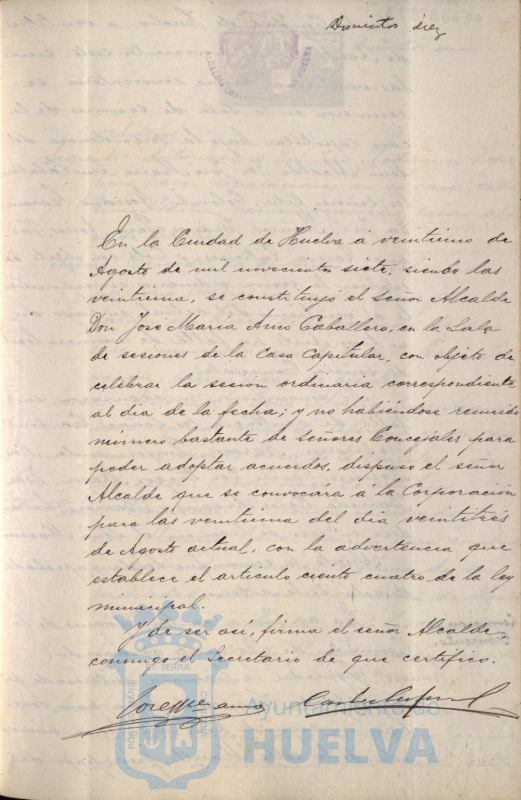 Doscientos diez
ALCALDIA CONSTITUCIONAL DE HUELVA
En la Ciudad de Huelva á veintiuno de
Agosto de mil novecientos siete, siendo las
veintiuna, se constituyó el Señor Alcalde
Don José María Amo Caballero, en la Sala
de sesiones de la Casa Capitular, con objeto de
celebrar la sesión ordinaria correspondiente
al día de la fecha; y no habiéndose reunido
número bastante de señores Concejales para
poder adoptar acuerdos, dispuso el señor
Alcalde que se convocára á la Corporación
para las veintiuna del dia veintitrés
de Agosto actual, con la advertencia que
establece el articulo ciento cuatro de la ley
municipal.
Y de ser así, firma el señor Alcalde
conmigo el Secretario de que certifico.
Ayuntamiento de
HUELVA